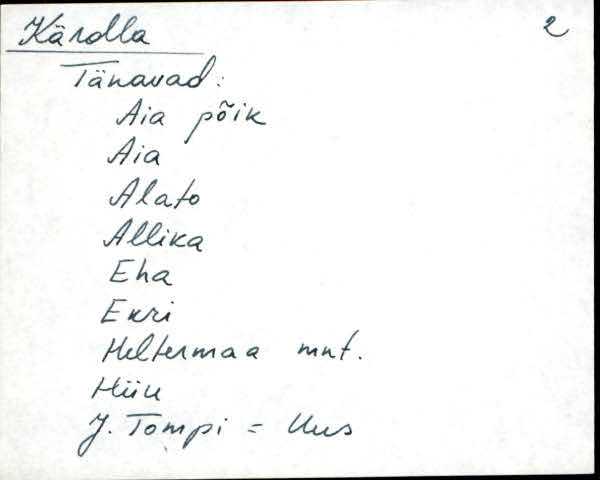 Kärdla 2
Tänavad:
Aia põik
Aia
Alato
Allika
Eha
Ekri
Heltermaa mnt.
Hiiu
J. Tompi = Uus